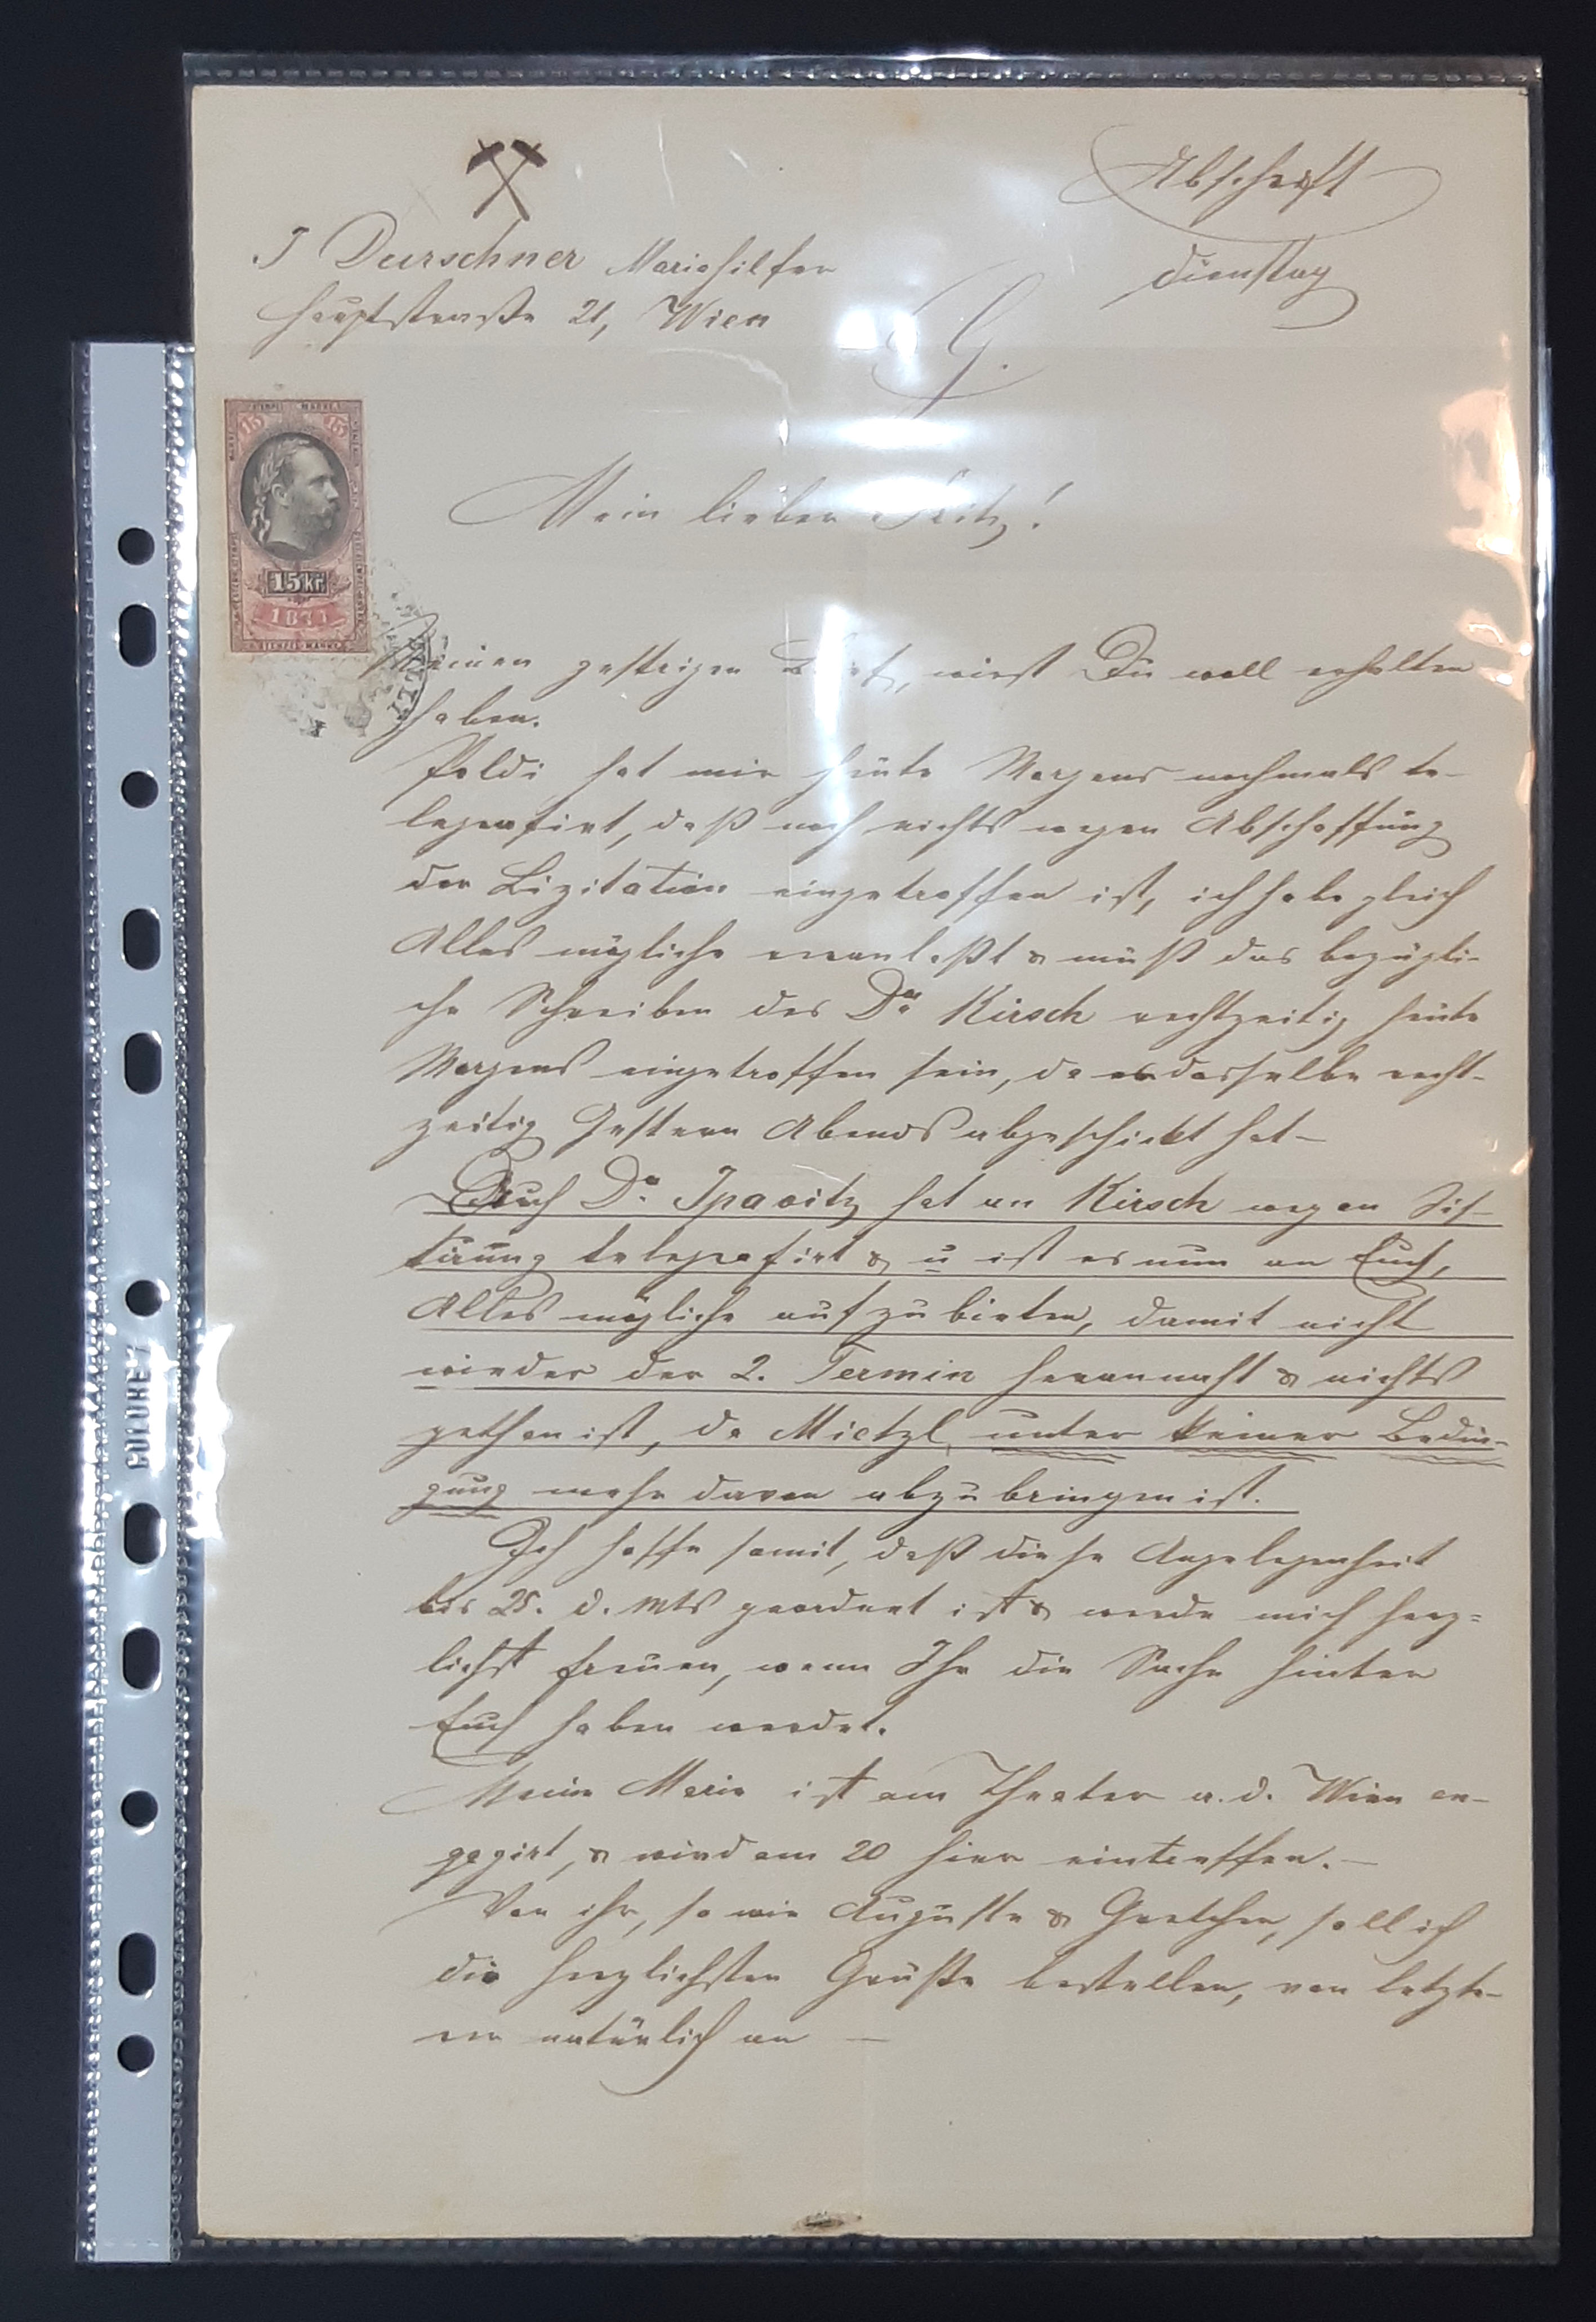 Abschrift
J Durschner Mariahilfer
Dienstag
hauptstrasse 21, Wien
G.
STEMPEL MARKE
15 15
15 kr.
1871
STEMPEL MARKE
Mein lieber Fritz!
Meinen gestrigen Brief, wirst Du woll erhalten
haben.
Poldi hat mir heute Morgens nochmals te-
legrafirt, daß noch nichts wegen Abschaffung
der Lizitation eingetroffen ist, ich habe gleich
Alles mögliche veranlaßt & muß das bezügli-
che Schreiben des Dr. Kirsch rechtzeitig heute
Morgens eingetroffen sein, da er dasselbe recht-
zeitig Gestern Abends abgeschickt hat –
Auch Dr. Ipavitz hat an Kirsch wegen Sis-
tirung telegrafirt & u ist es nun an Euch,
Alles mögliche aufzubieten, damit nicht
wieder der 2. Termin herannaht & nichts
gethan ist, da Mietzl unter keiner Bedin-
gung mehr davon abzubringen ist.
Ich hoffe somit, daß diese Angelegenheit
bis 25. d. Mts geordnet ist & werde mich herz=
lichst freuen, wenn Ihr die Sache hinter
Euch haben werdet.
Meine Marie ist am Theater a. d. Wien en-
gagirt, & wird am 20 hier eintreffen. –
Von ihr, so wie Auguste & Gretchen, soll ich
die herzlichsten Grüße bestellen, von letzte-
rer natürlich an –
GOLDREX